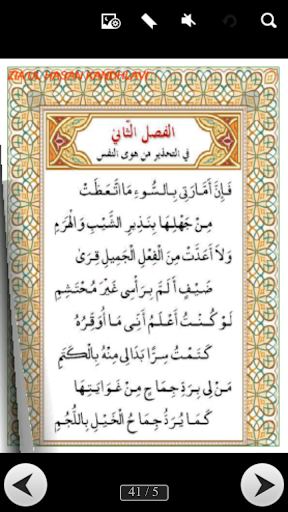 ZIA UL HASAN KANDHLAVI
الفصل الثاني
في التحذير من هوى النفس
فَإِنَّ أَمَّارَتِي بِالسُّوءِ مَا اتَّعَظَتْ
مِنْ جَهْلِهَا بِنَذِيرِ الشَّيْبِ وَالْهَرَمِ
وَلَا أَعَدَّتْ مِنَ الْفِعْلِ الْجَمِيلِ قِرَىٰ
ضَيْفٍ أَلَمَّ بِرَأْسِي غَيْرَ مُحْتَشِمِ
لَوْ كُنْتُ أَعْلَمُ أَنِّي مَا أُوَقِّرُهُ
كَتَمْتُ سِرًّا بَدَا لِي مِنْهُ بِالْكَتَمِ
مَنْ لِي بِرَدِّ جِمَاحٍ مِنْ غَوَايَتِهَا
كَمَا يُرَدُّ جِمَاحُ الْخَيْلِ بِاللُّجُمِ
41 / 5